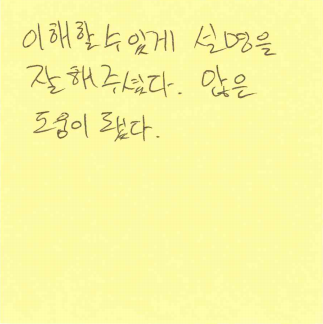 이해할 수 있게 설명을
잘 해주셨다. 많은
도움이 됐다.